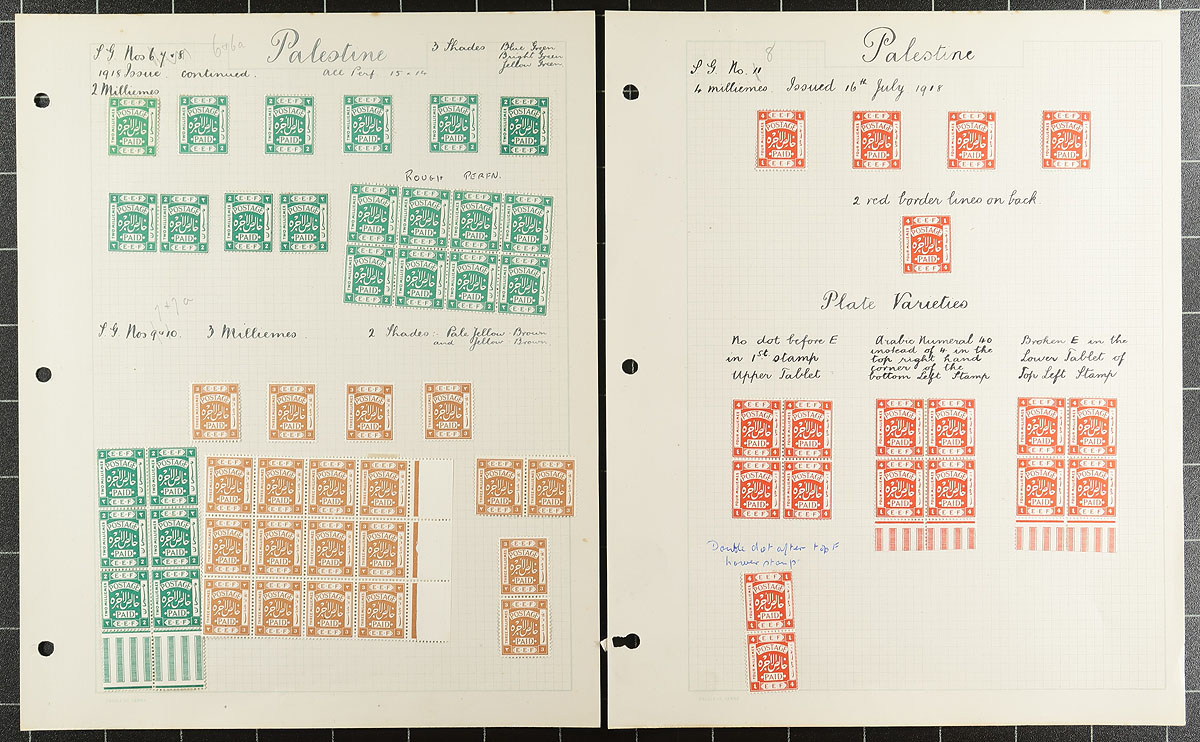 6+6a
S.G. Nos 6 7 + 8
Palestine
3 Shades
Blue Green
Bright Green
Yellow Green
1918 Issue. continued.
all Perf. 15 × 14
2 Milliemes
E.E.F
POSTAGE
خالص الأجرة
PAID
E.E.F
2
ROUGH PERFN.
7+7a
S.G. Nos 9 & 10.
3 Milliemes
2 Shades :- Pale Yellow-Brown
and Yellow-Brown
E.E.F
POSTAGE
خالص الأجرة
PAID
E.E.F
3
8
Palestine
S.G. No. 11
4 milliemes. Issued 16th July 1918
E.E.F
POSTAGE
خالص الأجرة
PAID
E.E.F
4
2 red border lines on back.
Plate Varieties
No dot before E
in 1st stamp
Upper Tablet
Arabic Numeral 40
instead of 4 in the
top right hand
corner of the
bottom Left Stamp
Broken E in the
Lower Tablet of
Top Left Stamp
Double dot after top F
lower stamp